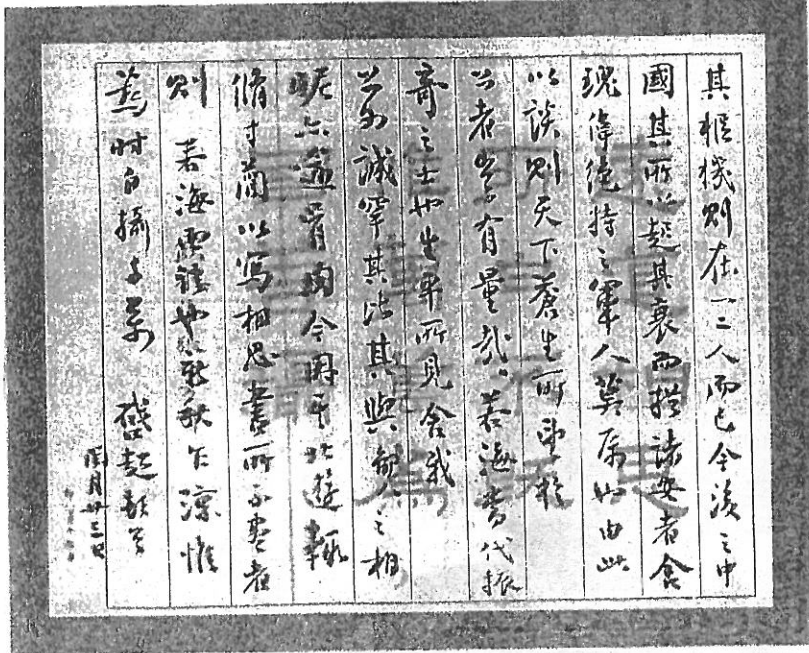 其樞機則在一二人而已今後之中
國其所以起其衰而措諸安者舍
瑰偉絕特之軍人莫屬也由此
以談則天下蒼生所望於
公者豈有量哉若海當代振
奇之士也生平所見舍我
公外誠罕其比其與僕之相
昵亦逾骨肉今因其北遊輒
脩寸簡以寫相思書所不盡者
則 若海面陳也新秋乍涼惟
為時自攝 啟超頓首
閏月廿三日